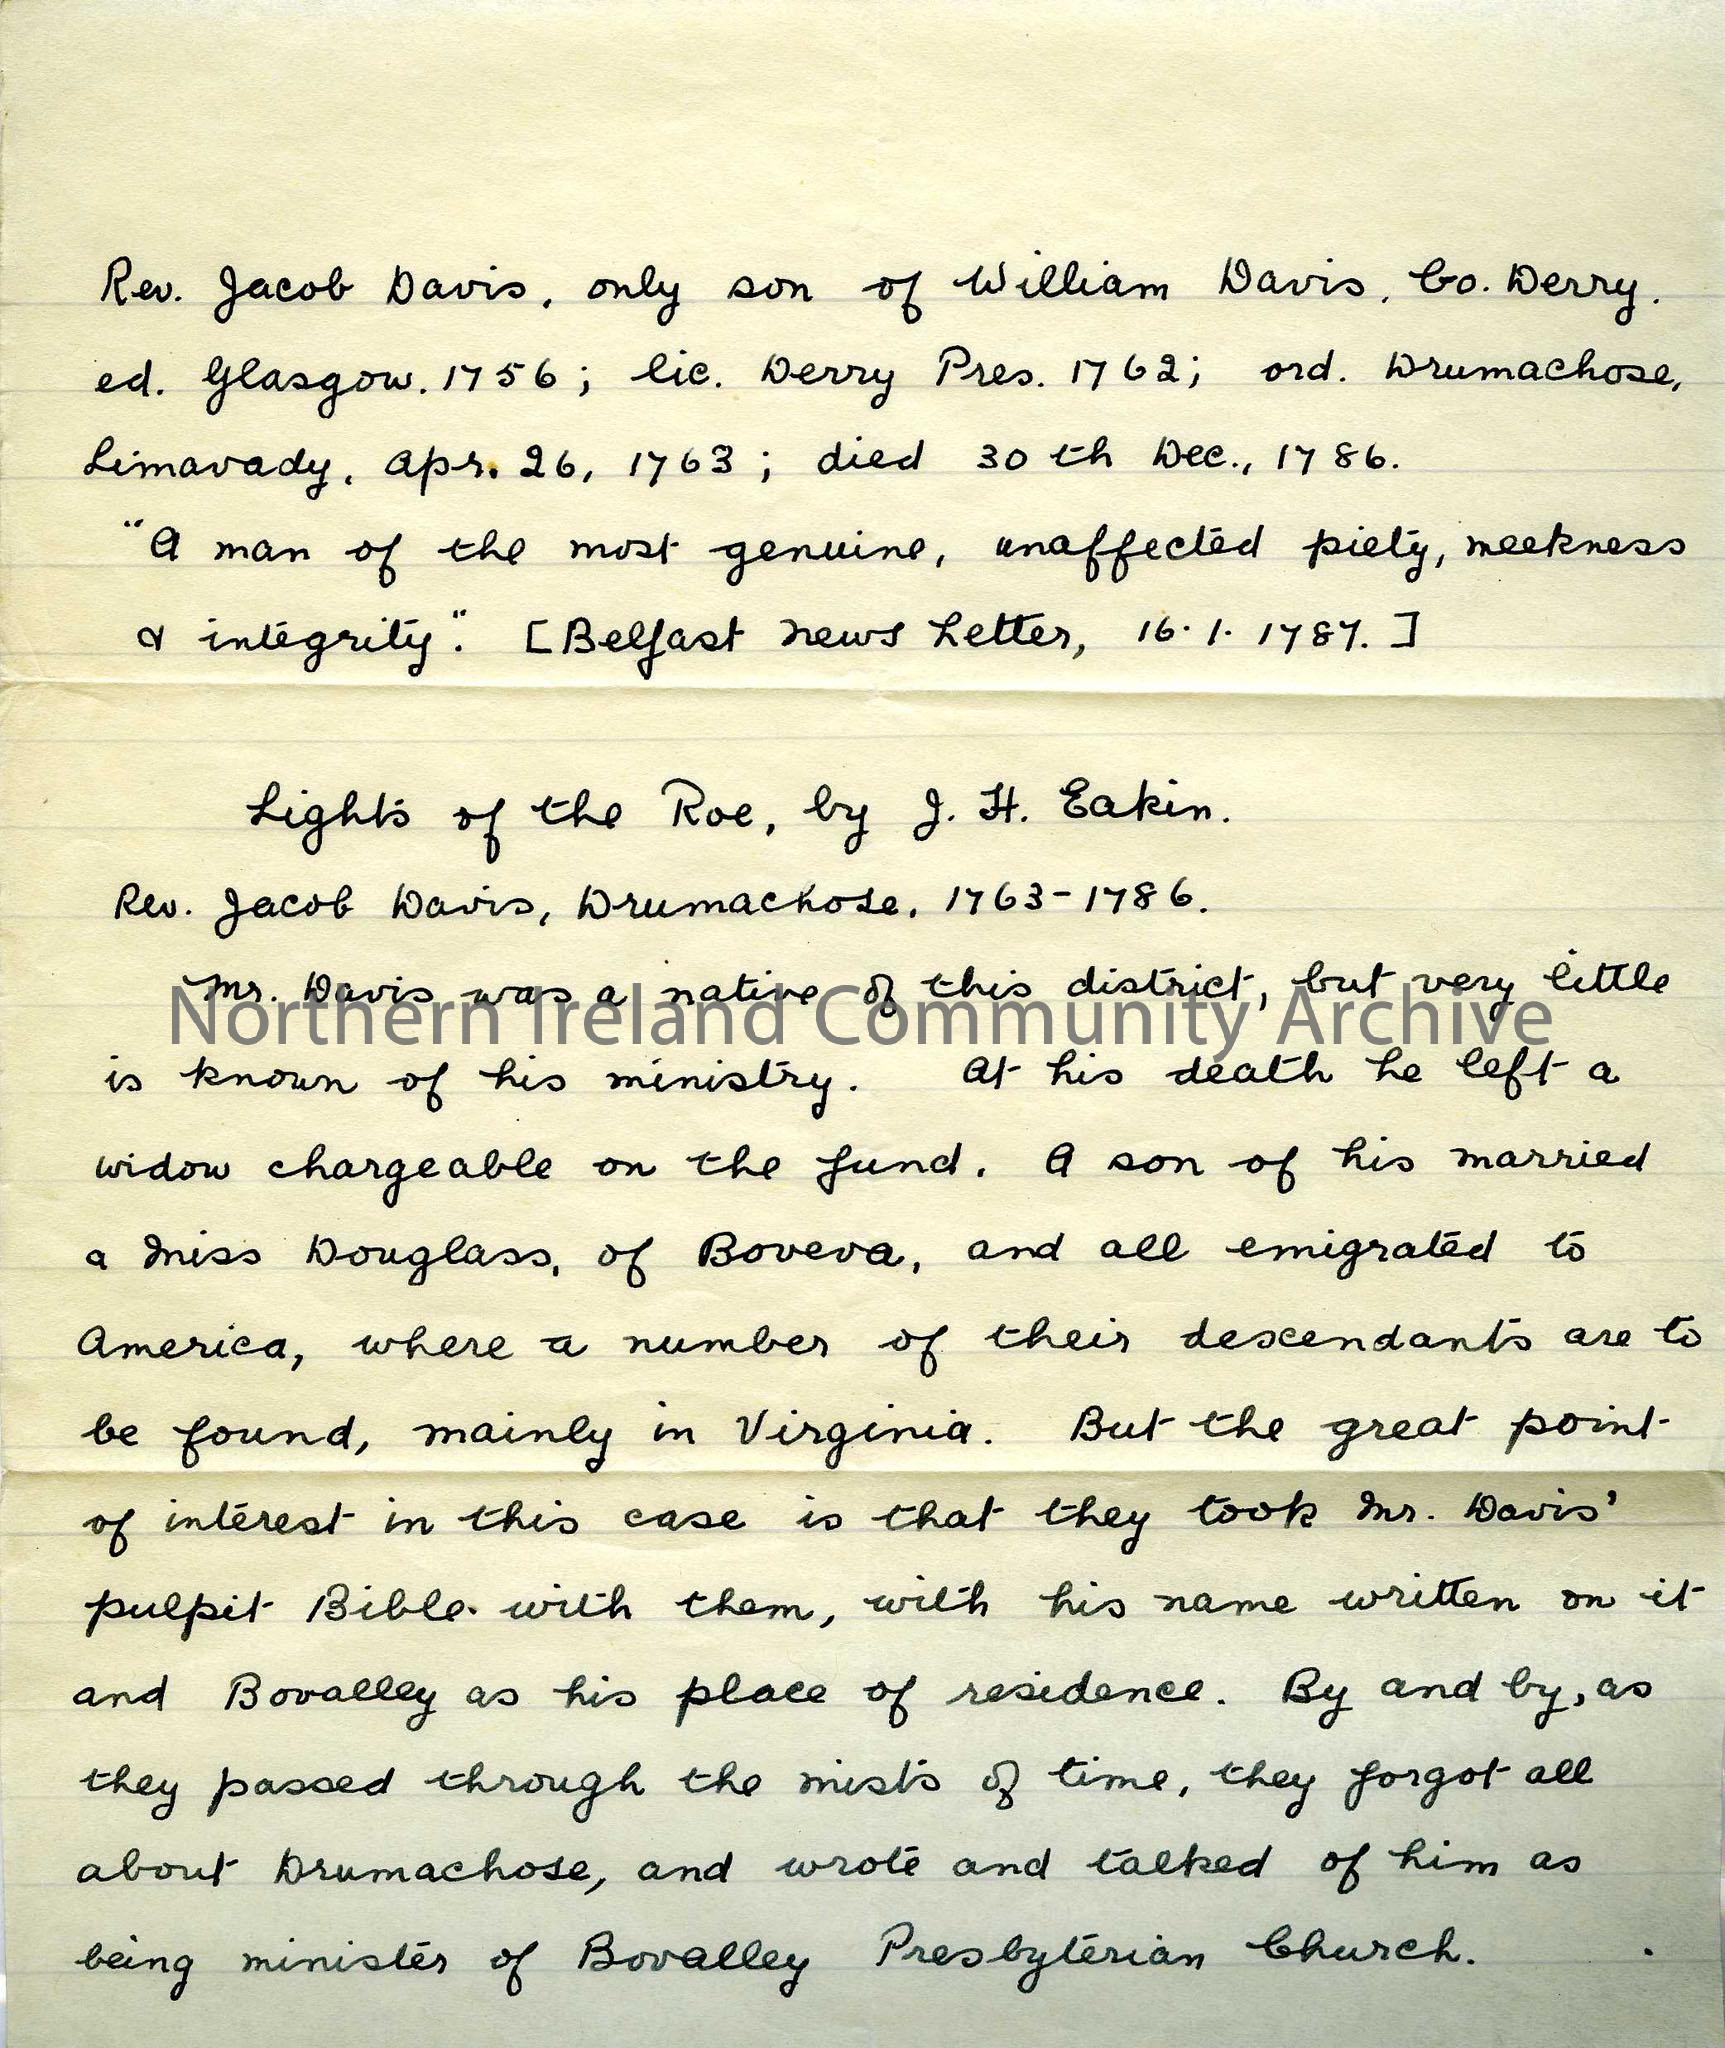 Rev. Jacob Davis, only son of William Davis, Co. Derry.
ed. Glasgow. 1756; lic. Derry Pres. 1762; ord. Drumachose,
Limavady, Apr. 26, 1763; died 30th Dec., 1786.
"A man of the most genuine, unaffected piety, meekness
& integrity". [Belfast News Letter, 16.1.1787.]
Lights of the Roe, by J. H. Eakin.
Rev. Jacob Davis, Drumachose, 1763-1786.
Mr. Davis was a native of this district, but very little
Northern Ireland Community Archive
is known of his ministry. At his death he left a
widow chargeable on the fund. A son of his married
a Miss Douglass, of Boveva, and all emigrated to
America, where a number of their descendants are to
be found, mainly in Virginia. But the great point
of interest in this case is that they took Mr. Davis'
pulpit Bible with them, with his name written on it
and Bovalley as his place of residence. By and by, as
they passed through the mists of time, they forgot all
about Drumachose, and wrote and talked of him as
being minister of Bovalley Presbyterian Church.